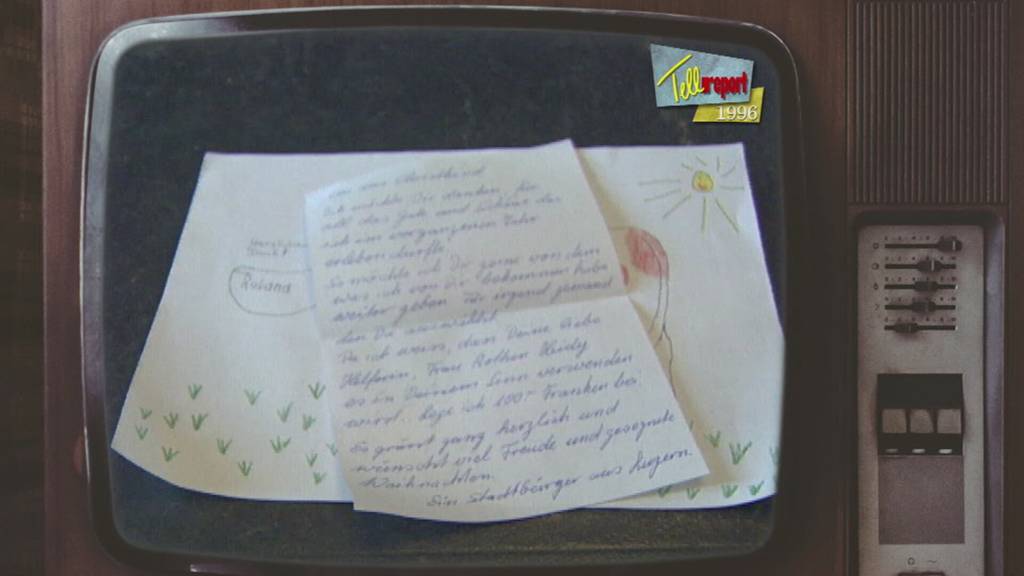 Tell report
1996
Roland
Christkind
Ich möchte Dir danken, für
all das Gute und Schöne das
ich im vergangenen Jahr
erleben durfte!
So möchte ich Dir gerne von dem
was ich von Dir bekommen habe
weiter geben für irgend jemand
den Du auswählst.
Da ich weiss, dass Deine liebe
Helferin, Frau Rothen Heidy
es in Deinem Sinn verwenden
wird, lege ich 100.- Franken bei.
Es grüsst ganz herzlich und
wünscht viel Freude und gesegnete
Weihnachten.
Ein Stadtbürger aus Luzern.